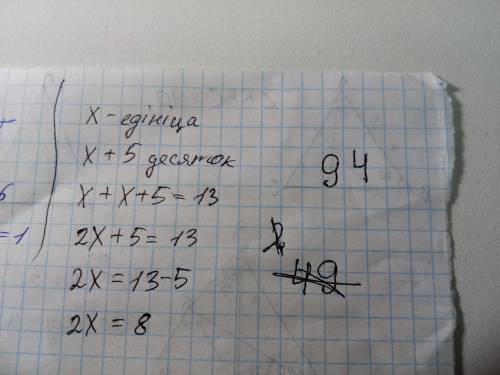 x - едініца
x + 5 десяток
x + x + 5 = 13
2x + 5 = 13
2x = 13 - 5
2x = 8
94
49
6
=1